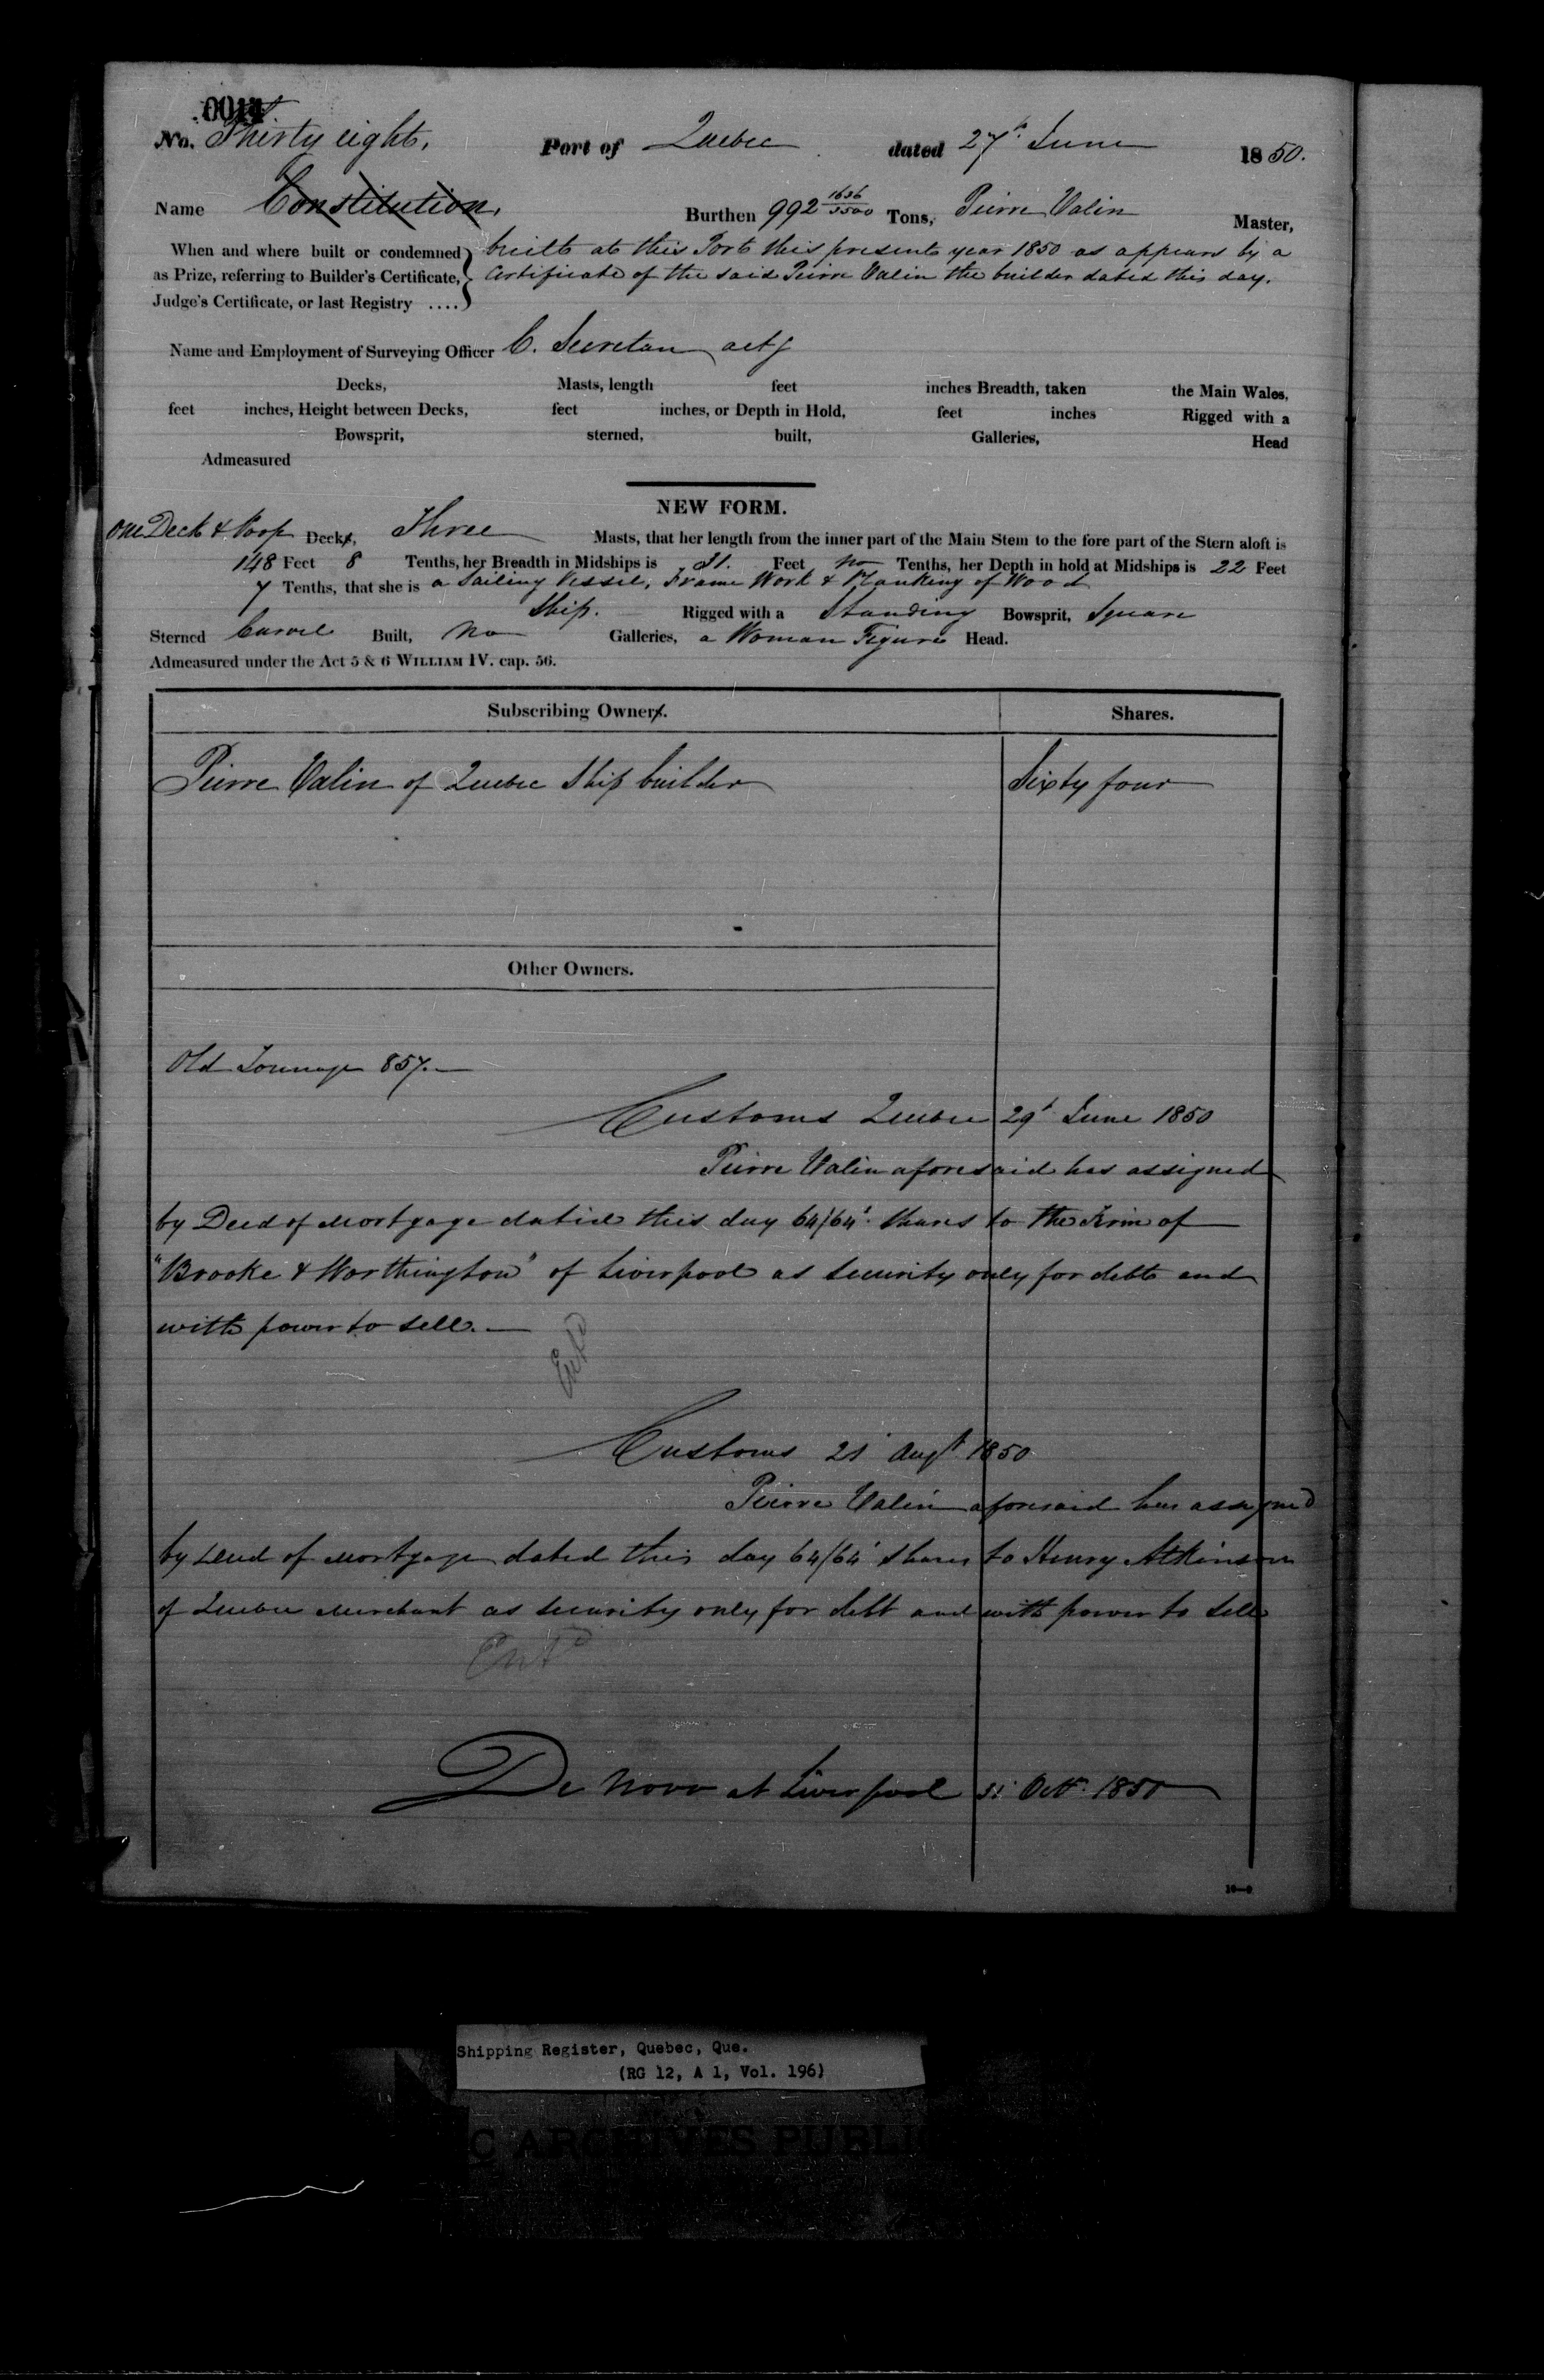 0014
No. Thirty eight. Port of Quebec dated 27t June 1850.
Name Constitution, Burthen 992 1636/3500 Tons, Pierre Valin Master,
When and where built or condemned built at this Port this present year 1850 as appears by a
as Prize, referring to Builder's Certificate, Certificate of the said Pierre Valin the builder dated this day.
Judge's Certificate, or last Registry ....
Name and Employment of Surveying Officer C. Secretan actg
Decks, Masts, length feet inches Breadth, taken the Main Wales,
feet inches, Height between Decks, feet inches, or Depth in Hold, feet inches Rigged with a
Bowsprit, sterned, built, Galleries, Head
Admeasured
NEW FORM.
One Deck & Poop Decks, Three Masts, that her length from the inner part of the Main Stem to the fore part of the Stern aloft is
148 Feet 8 Tenths, her Breadth in Midships is 31. Feet no Tenths, her Depth in hold at Midships is 22 Feet
7 Tenths, that she is a Sailing Vessel, Frame Work & Planking of Wood
Ship. Rigged with a Standing Bowsprit, Square
Sterned Carvel Built, No Galleries, a Woman Figure Head.
Admeasured under the Act 5 & 6 WILLIAM IV. cap. 56.
Subscribing Owners. Shares.
Pierre Valin of Quebec Ship builder Sixty four
Other Owners.
Old Tonnage 857.
Customs Quebec 29t June 1850
Pierre Valin aforesaid has assigned
by Deed of Mortgage dated this day 64/64t shares to the Firm of
"Brooke & Worthington" of Liverpool as security only for debt and
with power to sell.
Entd
Customs 21t Augt 1850
Pierre Valin aforesaid has assigned
by Deed of Mortgage dated this day 64/64t shares to Henry Atkinson
of Quebec Merchant as security only for debt and with power to sell
Entd
De Novo at Liverpool 31t Octr. 1850
10—9
Shipping Register, Quebec, Que.
(RG 12, A 1, Vol. 196)
C ARCHIVES PUBLI